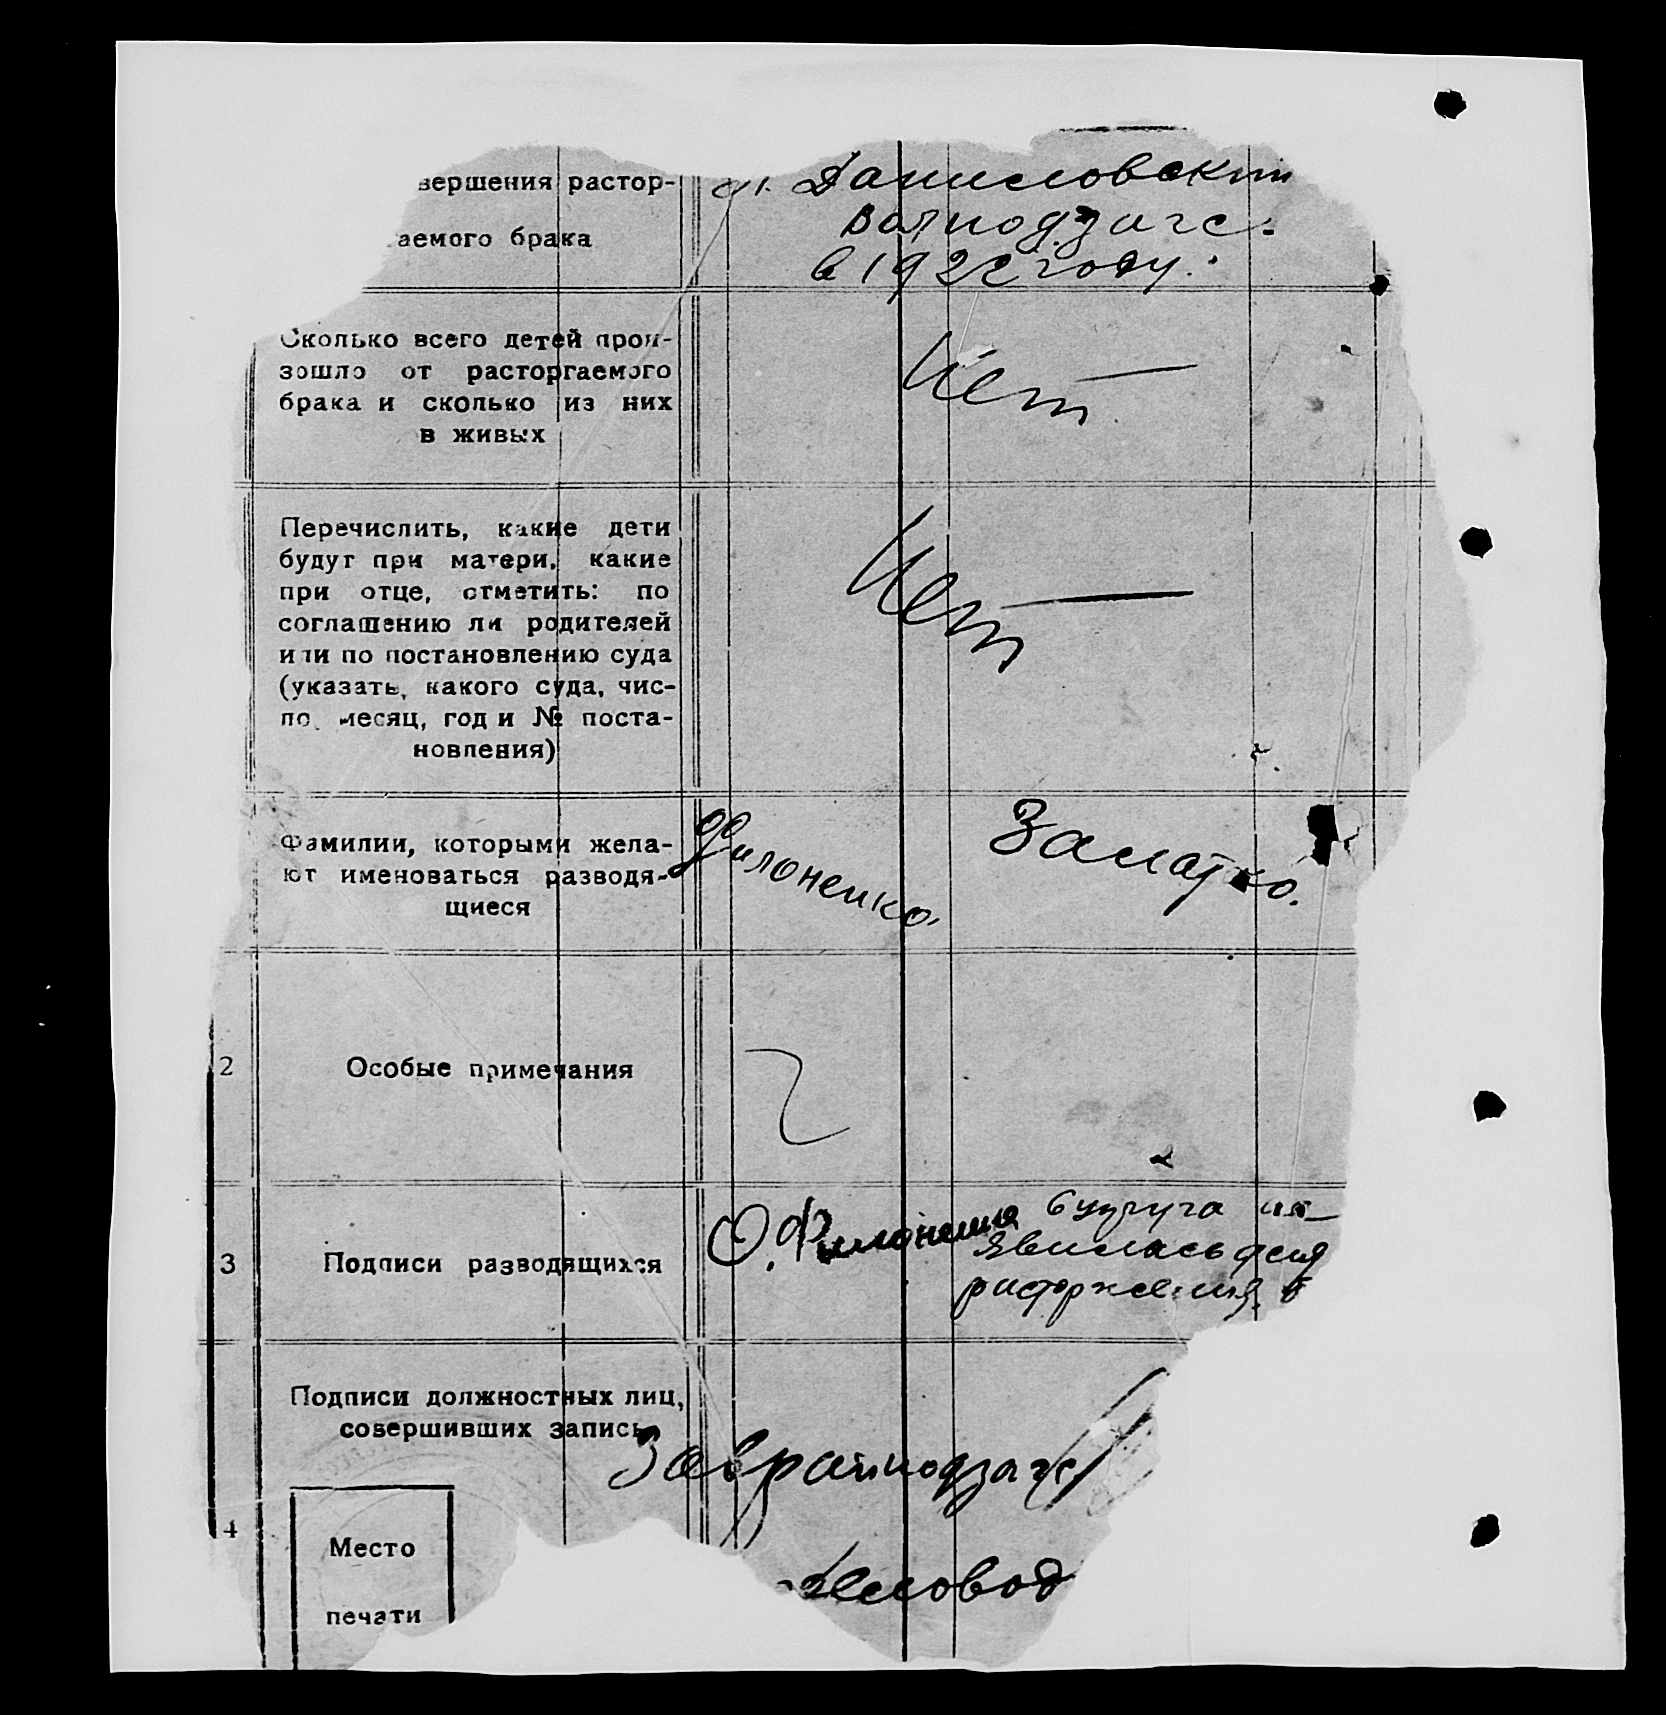 вершения растор-
аемого брака
Даниловский
волподзагс.
в 1922 году.
Сколько всего детей прои-
зошло от расторгаемого
брака и сколько из них
в живых
Нет
Перечислить, какие дети
будут при матери, какие
при отце, отметить: по
соглашению ли родителей
или по постановлению суда
(указать, какого суда, чис-
ло, месяц, год и № поста-
новления)
Нет
Фамилии, которыми жела-
ют именоваться разводя-
щиеся
Филоненко.
2
Особые примечания
3
Подписи разводящихся
О. Филоненко
Супруга не
явилась для
расторжения
Подписи должностных лиц,
совершивших запись
Заврайподзагс
4
Место
печати
деловод